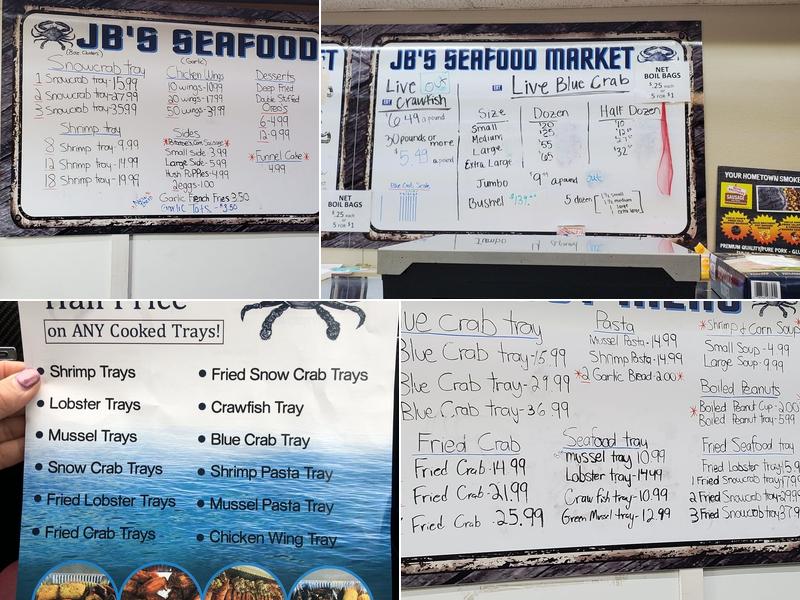 JB'S SEAFOOD
(8oz. Clusters)
Snowcrab tray
1 Snowcrab tray-15.99
2 Snowcrab tray-27.99
3 Snowcrab tray-35.99
Shrimp tray
8 Shrimp tray-9.99
12 Shrimp tray-14.99
18 Shrimp tray-19.99
(Garlic)
Chicken Wings
10 wings-10.99
20 wings-17.99
50 wings-39.99
Sides
Small Side 3.99
Large Side-5.99
Hush Puppies-4.99
2 eggs-1.00
Garlic French Fries 3.50
Garlic Tots-$3.50
Desserts
Deep Fried
Double Stuffed
Oreo's
6-4.99
12-9.99
*Funnel Cake*
4.99
JB'S SEAFOOD MARKET
Live
Crawfish
$6.49 a pound
30 pounds or
more
$5.49 a pound
Live Blue Crab
Size Dozen Half Dozen
Small
Medium $25
Large $55
Extra Large $65 $32
Jumbo $9 a pound out
Bushel 5 dozen
NET
BOIL BAGS
$.25 each
or
5 FOR $1
NET
BOIL BAGS
$.25 each
or
5 FOR $1
YOUR HOMETOWN SMOKE
SAUSAGE
PREMIUM QUALITY/PURE PORK - GLU
Half Price
on ANY Cooked Trays!
• Shrimp Trays
• Lobster Trays
• Mussel Trays
• Snow Crab Trays
• Fried Lobster Trays
• Fried Crab Trays
• Fried Snow Crab Trays
• Crawfish Tray
• Blue Crab Tray
• Shrimp Pasta Tray
• Mussel Pasta Tray
• Chicken Wing Tray
MENU
ue Crab tray
Blue Crab tray-15.99
Blue Crab tray-29.99
Blue Crab tray-36.99
Fried Crab
Fried Crab-14.99
Fried Crab-21.99
Fried Crab-25.99
Pasta
Mussel Pasta-14.99
Shrimp Pasta-14.99
*2 Garlic Bread-2.00*
Seafood tray
mussel tray 10.99
Lobster tray-14.49
Crawfish tray-10.99
Green Mussel tray-12.99
*Shrimp & Corn Soup
Small Soup-4.99
Large Soup-9.99
Boiled Peanuts
*Boiled Peanut Cup-2.00
Boiled Peanut tray-5.99
Fried Seafood tray
Fried Lobster tray 15.9
1 Fried Snowcrab tray 17.9
2 Fried Snowcrab tray-29.99
3 Fried Snowcrab tray 37.9